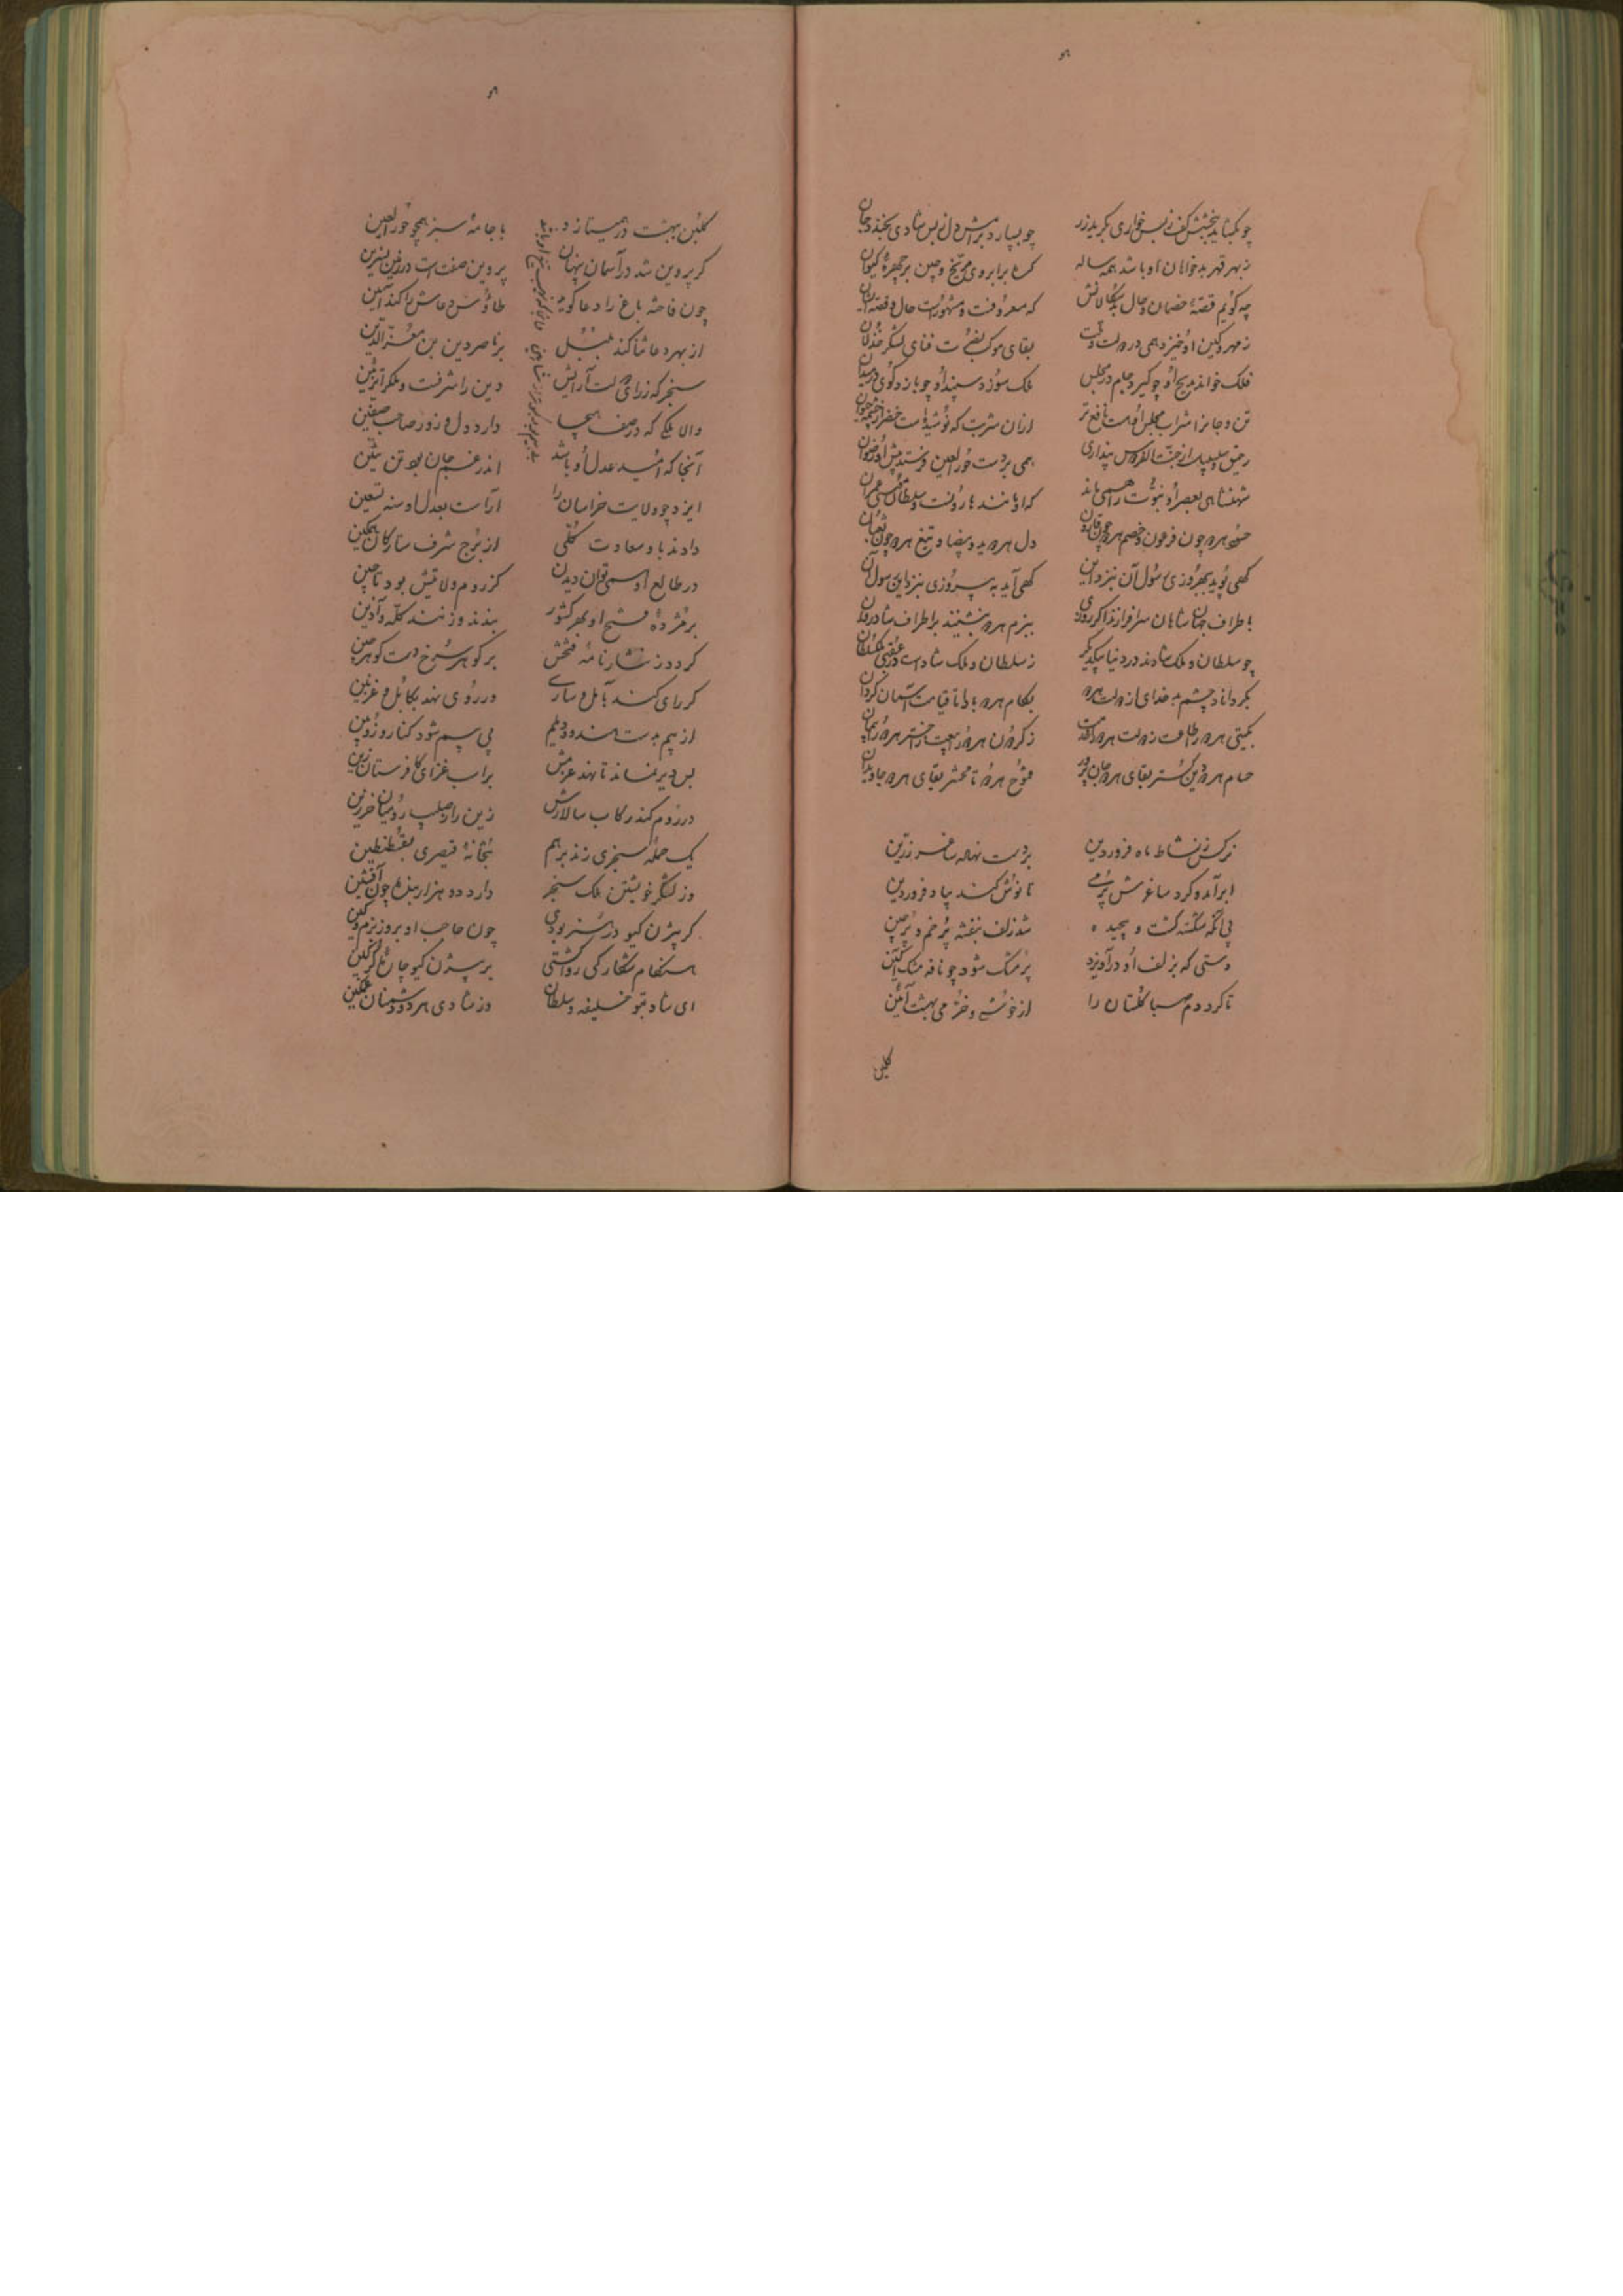 چو بگشاید ببخشش کف ز بس خواری بگرید زر چو بسپارد برامش دل ز بس شادی بخندد جان
ز بهر قهر بدخواهان او باشد همه ساله گره بر ابروی مریخ و چین بر چهرهٔ کیوان
چه گویم قصهٔ خصمان و حال بدسگالانش که معروفست و مشهورست حال و قصهٔ ایشان
ز مهر و کین او خیزد همی در دولت و ملت بقای موکب نصرت فنای لشکر خذلان
فلک خواند مدیح او چو گیرد جام در مجلس ملک سوزد سپند او چو بازد گوی در میدان
تن و جانرا شراب مجلس او هست نافع‌تر از آن شربت که نوشیدست خضر از چشمهٔ حیوان
رحیق و سلسبیل از جنت الفردوس پنداری همی بر دست حورالعین فرستد پیش او رضوان
شهنشاهی بعصر او نبوت را همی ماند که او مانند هارونست و سلطان موسی عمران
حسود هر دو چون فرعون و خصم هر دو چون قارون دل هر دو ید و بیضا و تیغ هر دو چون ثعبان
گهی پوید ببهروزی رسول آن بنزد این گهی آید به پیروزی بنزد این رسول آن
باطراف جهان شاهان سرافرازند اگر روزی ببزم هر دو بنشینند بر اطراف شادروان
چو سلطان و ملک شادند در دنیا بیکدیگر ز سلطان و ملک شادست در عقبی ملکسلطان
بگرداناد چشم بد خدای از دولت هر دو بکام هر دو بادا تا قیامت آسمان گردان
بگیتی هر دو را طاعت ز دولت هر دو را قوت ز گردون هر دو را بیعت ز اختر هر دو را پیمان
حسام هر دو دین گستر بقای هر دو جان پرور فتوح هر دو تا محشر بقای هر دو جاویدان
نرگس ز نشاط ماه فروردین بر دست نهاد ساغر زرین
ابر آمد و کرد ساغرش پر می تا نوش کند بیاد فروردین
بی آنکه شکسته گشت و پیچیده شد زلف بنفشه پر خم و پرچین
دستی که بزلف او درآویزد پر مشک شود چو نافه مشک آگین
تا کرد دم صبا گلستان را از خوشی و خرمی بهشت آئین
گلبن
گلبن ببهشت در همی نازد با جامهٔ سبز همچو حورالعین
گر پروین شد در آسمان پنهان پروین صفت است در زمین نسرین
چون فاخته باغ را دعا گوید طاؤس دعاش را کند آمین
از بهر دعا ثنا کند بلبل بر ناصر دین بن معزالدین
سنجر که ز رای دولت آرایش دین را شرفست و ملک را تزئین
والا ملکی که در صف هیجا دارد دل و زور صاحب صفین
آنجا که امید عدل او باشد اندر غم جان بود تن تنین
ایزد چو ولایت خراسان را آراست بعدل او سنه تسعین
دادند باو سعادت کلی از برج شرف ستارگان تمکین
در طالع او همی توان دیدن کز روم ولایتش بود تا چین
بر مژدهٔ فتح او بهر کشور بندند و زنند کله و آذین
گردد ز نثار نامهٔ فتحش پر گوهر سرخ دست گوهرچین
گر رای کند بآمل و ساری ور روی نهد بکابل و غزنین
از بیم بدست هند و دیلم بی سیم شود کناره و زوبین
بس دیر نماند تا نهد عزمش بر اسب غزای کافرستان زین
در روم کند رکاب سالارش زین را ز صلیب رومیان خرزین
یک حمله سنجری زند برهم بتخانهٔ قیصری بقسطنطین
وز لشکر خویشتن ملک سنجر دارد دو هزار بنده چون افشین
گر بیژن گیو در هنر بودی چون حاجب او بروز بزم و کین
هنگام شکار کی روا گشتی بر بیژن گیو چارهٔ گرگین
ای شاد بتو خلیفه و سلطان وز شادی هر دو دشمنان غمگین